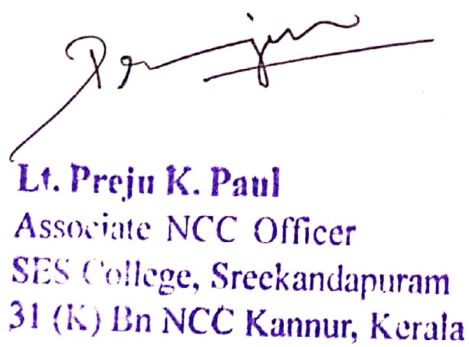 Preju
Lt. Preju K. Paul
Associate NCC Officer
SES College, Sreekandapuram
31 (K) Bn NCC Kannur, Kerala